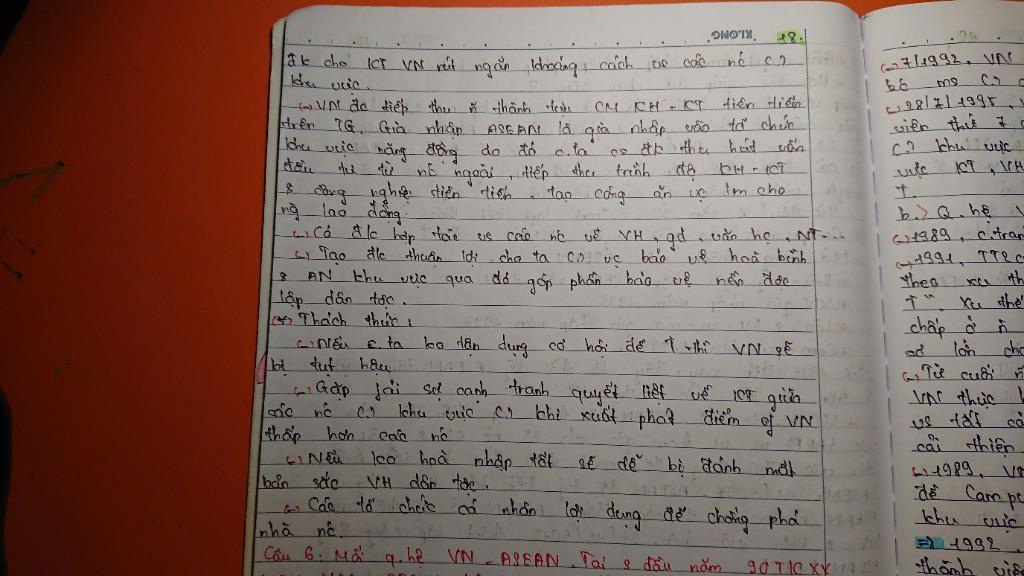 KLONG 18.
đk cho KT VN rút ngắn khoảng cách vs các nc C?
khu vực.
VN đc tiếp thu n~ thành tựu CM KH-KT tiên tiến
trên TG. Gia nhập ASEAN là gia nhập vào tổ chức
khu vực năng động do đó c.ta có đk thu hút vốn
đầu tư từ nc ngoài, tiếp thu trình độ KH-KT
& công nghệ tiên tiến, tạo công ăn lm cho
ng lao động.
Có đk hợp tác vs các nc về VH, gd, văn hc, NT...
Tạo đk thuận lợi cho ta bảo vệ hoà bình
& AN khu vực qua đó góp phần bảo vệ nền độc
lập dân tộc.
(*) Thách thức:
Nếu c.ta ko tận dụng cơ hội để thì VN sẽ
bị tụt hậu
Gặp fải sự cạnh tranh quyết liệt về KT giữa
các nc khu vực khi xuất phát điểm of VN
thấp hơn các nc
Nếu ko hoà nhập tốt sẽ dễ bị đánh mất
bản sắc VH dân tộc.
Các tổ chức cá nhân lợi dụng để chống phá
nhà nc.
Câu 6: Mối q.hệ VN - ASEAN. Tại s đầu năm 90 TK XX
7/1992, VN
28/7/1995,
viên thứ 7
khu vực
vực KT, VH
b. Q.hệ
1989, c.tran
1991,
theo xu th
" xu thế
chấp ở n~
sơ lớn cho
Từ cuối
VN thực
vs tất cả
cải thiện
1989, V
đề Campu
khu vực
=> 1992.
thành viên